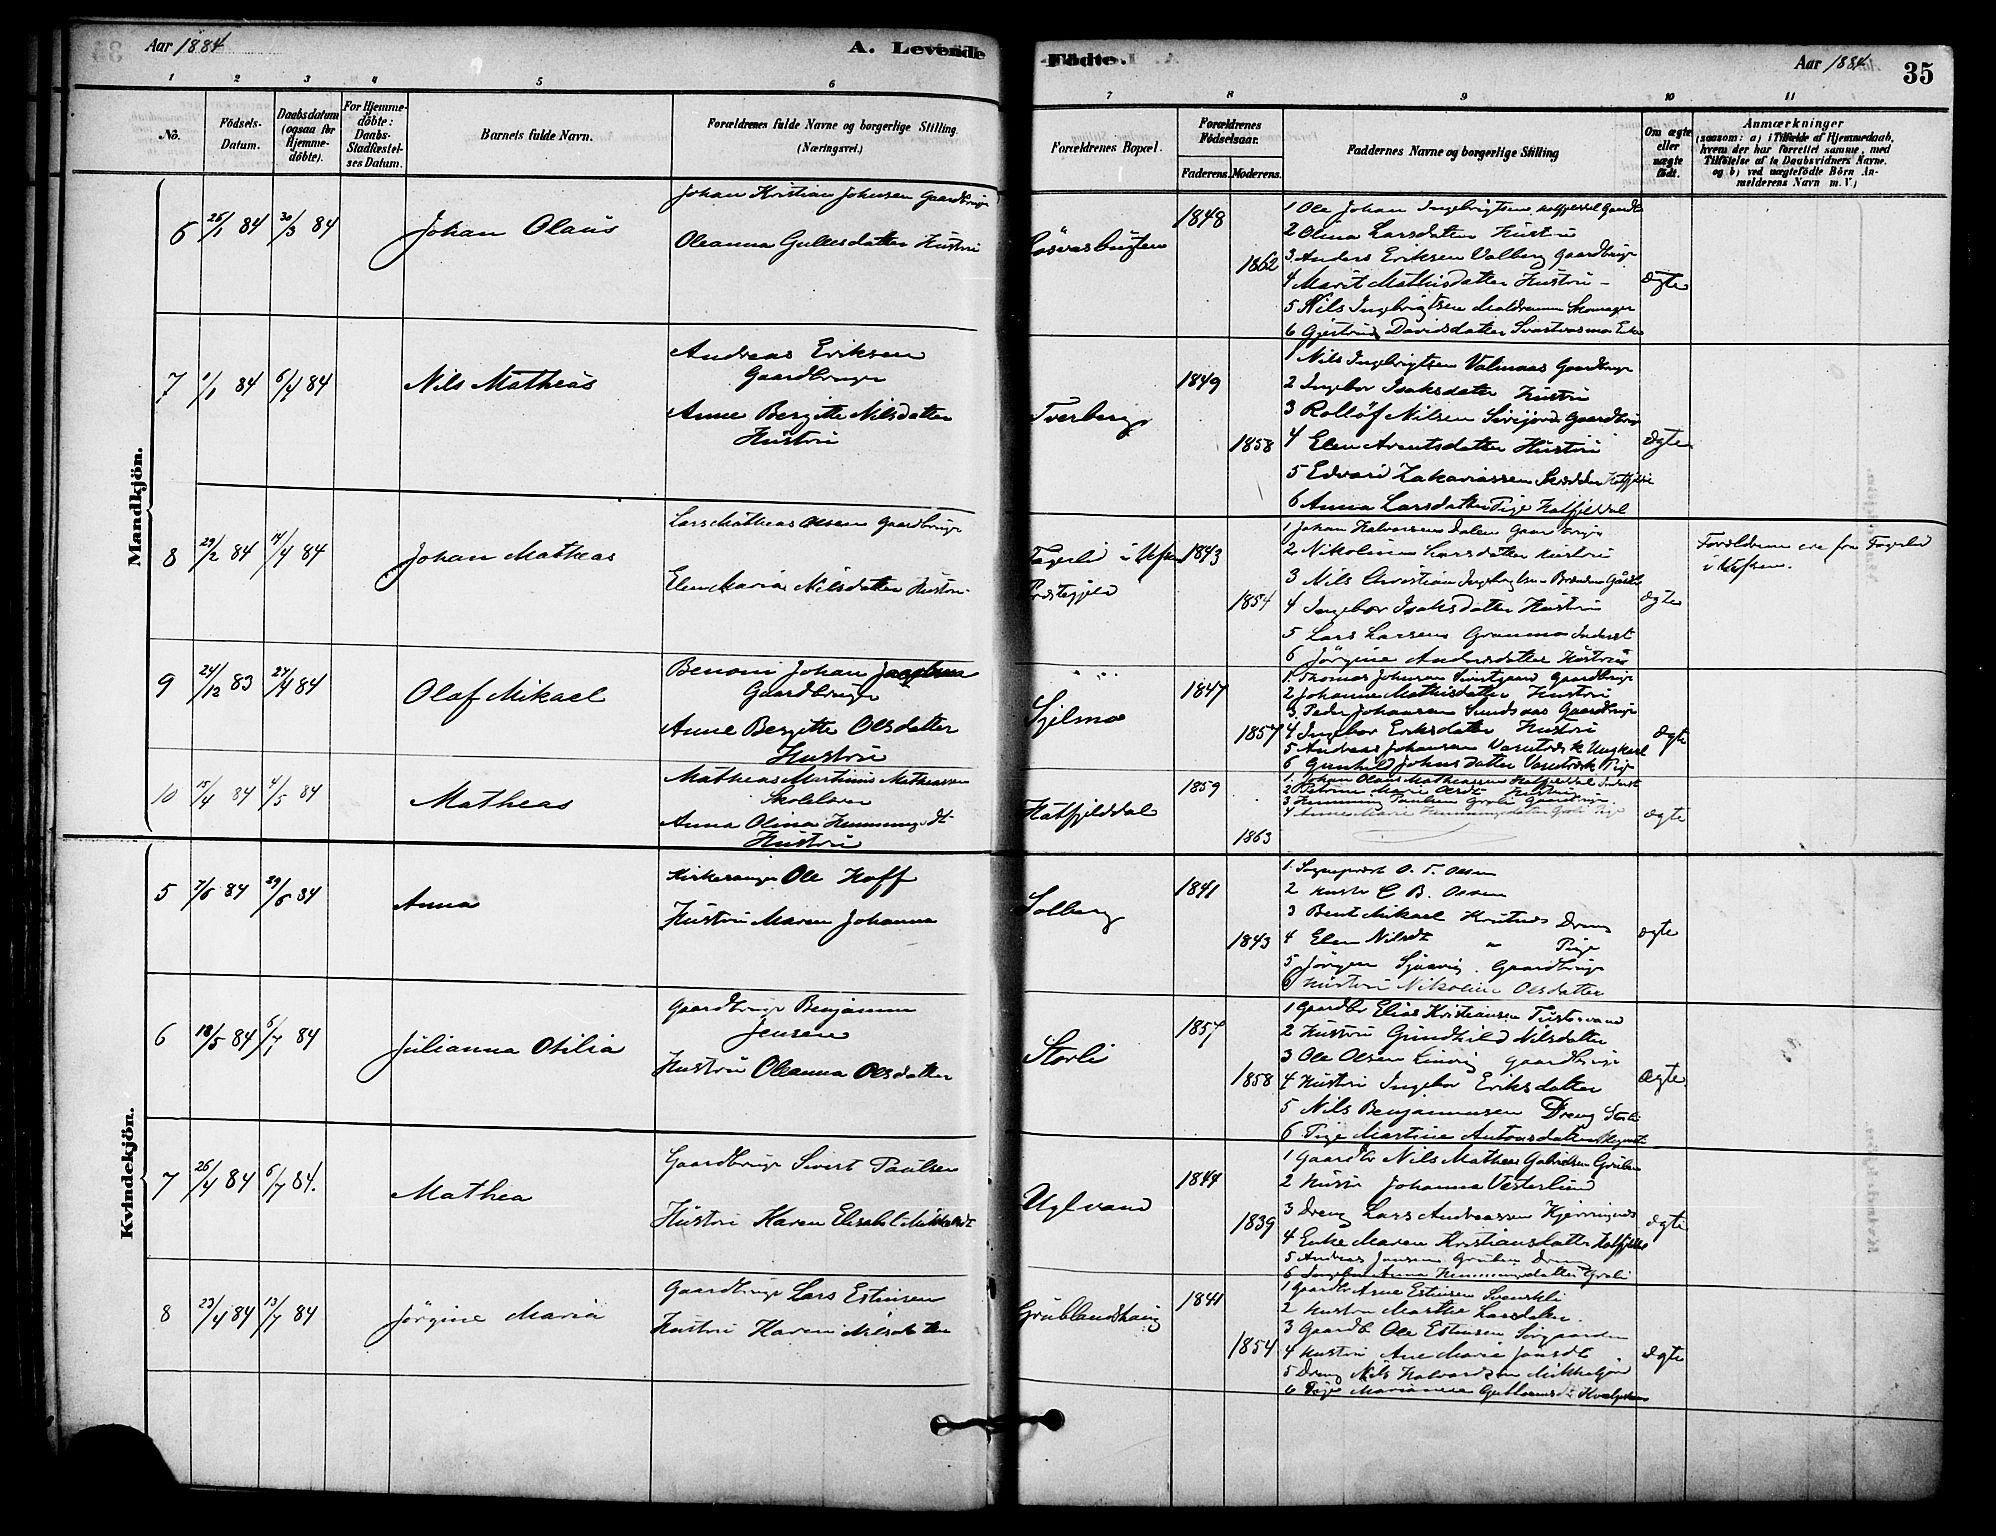 Aar 1884
A. Levende Födte.
Aar 1884
35
1 2 3 4 5 6 7 8 9 10 11
No.
Födsels-
Datum.
Daabsdatum
(ogsaa for
Hjemme-
döbte).
For Hjemme-
döbte:
Daabs-
Stadfæstel-
ses Datum.
Barnets fulde Navn.
Forældrenes fulde Navne og borgerlige Stilling
(Næringsvei.)
Forældrenes Bopæl.
Forældrenes
Födselsaar.
Faderens. Moderens.
Faddernes Navne og borgerlige Stilling
Om ægte
eller
uægte
födt.
Anmærkninger
(saasom: a) i Tilfælde af Hjemmedaab,
hvem der har forrettet samme, med
Tilföielse af to Daabsvidners Navne.
og b) ved uægtefödte Börn An-
melderens Navn m. V.)
Mandkjön.
6 26/1 84 30/3 84
Johan Olaus
Johan Kristian Johnsen Gaardbruger
Oleanna Gullesdatter Hustru
1848
1862
1 Ole Johan Ingebrigtsen
2 Olina Larsdatter Hustru
3 Anders Eriksen Valberg Gaardbruger
4 Marit Mathisdatter Hustru
5 Nils Ingebrigtsen Skomager
6 Gjertrud Davidsdatter Enke
ægte
7 1/1 84 6/4 84
Nils Matheas
Andreas Eriksen
Gaardbruger
Anne Bergitte Nilsdatter
Hustru
Tverberg
1849
1858
1 Nils Ingebrigtsen Valmaas Gaardbruger
2 Ingebor Isaksdatter Hustru
3 Rolløf Nilsen Gaardbr
4 Elen Arentsdatter Hustru
5 Edvard Zakariassen Skrædder
6 Anna Larsdatter Pige Hatfjeldal
ægte
8 29/2 84 14/4 84
Johan Matheas
Lars Matheas Olsen Gaardbruger
Elen Maria Nilsdatter Hustru
Fagerli i Vefsn
Præstegjeld
1843
1854
1 Johan Halvorsen Dalen Gaardbruger
2 Nikoline Larsdatter Hustru
3 Nils Christian Ingebrigtsen
4 Ingebor Isaksdatter Hustru
5 Lars Larsens Granmo Inderst
6 Jørgine Andersdatter Hustru
ægte
Forældrene ere fra Fagerli
i Vefsn.
9 24/12 83 27/4 84
Olaf Mikael
Benoni Johan Jacobsen
Gaardbruger
Anne Bergitte Olsdatter
Hustru
Sjelmo
1847
1857
1. Thomas Johnsen Gaardbruger
2 Johanne Mathisdatter Hustru
3. Peder Johansen Sundsaas Gaardbruger
4 Ingebor Eriksdatter Hustru
5 Andreas Johansen Ungkarl
6 Gunhild Johnsdatter Pige
ægte
10 15/4 84 4/5 84
Matheas
Matheas Martinus Matheassen
Skolelærer
Anna Olina Hemmingsdt
Hustru
Hatfjelddal
1859
1863
1. Johan Olaus Matheassen Hatfjeldal Inderst
2 Petrine Marie Olsdt Hustru
3 Hemming Paulsen Grøli Gaardbruger
4 Anne Marie Hemmingsdatter Grøli Pige
ægte
Kvindekjön.
5 7/6 84 29/6 84
Anna
Kirkesanger Ole Hoff
Hustru Maren Johanna
Solberg
1841
1843
1. Sognepræst O. T. Olsen
2 Hustr C B. Olsen
3 Bent Mikael Dreng
4 Elen Nilsdt " Pige
5 Jørgen Gaardbruger
6 Hustru Nikoline Olsdatter
ægte
6 18/5 84 6/7 84
Julianna Otilia
Gaardbruger Benjamin
Jensen
Hustru Oleanna Olsdatter
Storli
1857
1858
1 Gaardbr Elias Kristiansen
2 Hustru Gundhild Nilsdatter
3 Ole Olsen Gaardbruger
4 Hustru Ingebor Eriksdatter
5 Nils Benjaminsen Dreng Storli
6 Pige Martine Antonsdatter
Ægte
7 26/4 84 6/7 84.
Mathea
Gaardbruger Sivert Paulsen
Hustru Karen Elisabet
Uglvand
1844
1839
1 Gaardbr Nils Matheas Gabrielsen Gruben
2 Hustr Johanna Vesterlund
3 Dreng Lars Andreassen
4 Enke Maren Kristiansdatter
5 Andreas Jensen Gruben Dreng
6 Ingebor Anna Hemmingsdatter Grøli
ægte
8 23/4 84 13/7 84
Jørgine Maria
Gaardbruger Lars Estensen
Hustru Karen Nilsdatter
Grublandshaug
1841
1854
1 Gaardbr Arne Estensen Svenskli
2 Hustru Marthe Larsdatter
3 Gaardb Ole Estensen Sørgaarden
4 Hustru Ane Marie Jonsdt
5 Dreng Nils Halvardsen
6 Pige Marianne
ægte